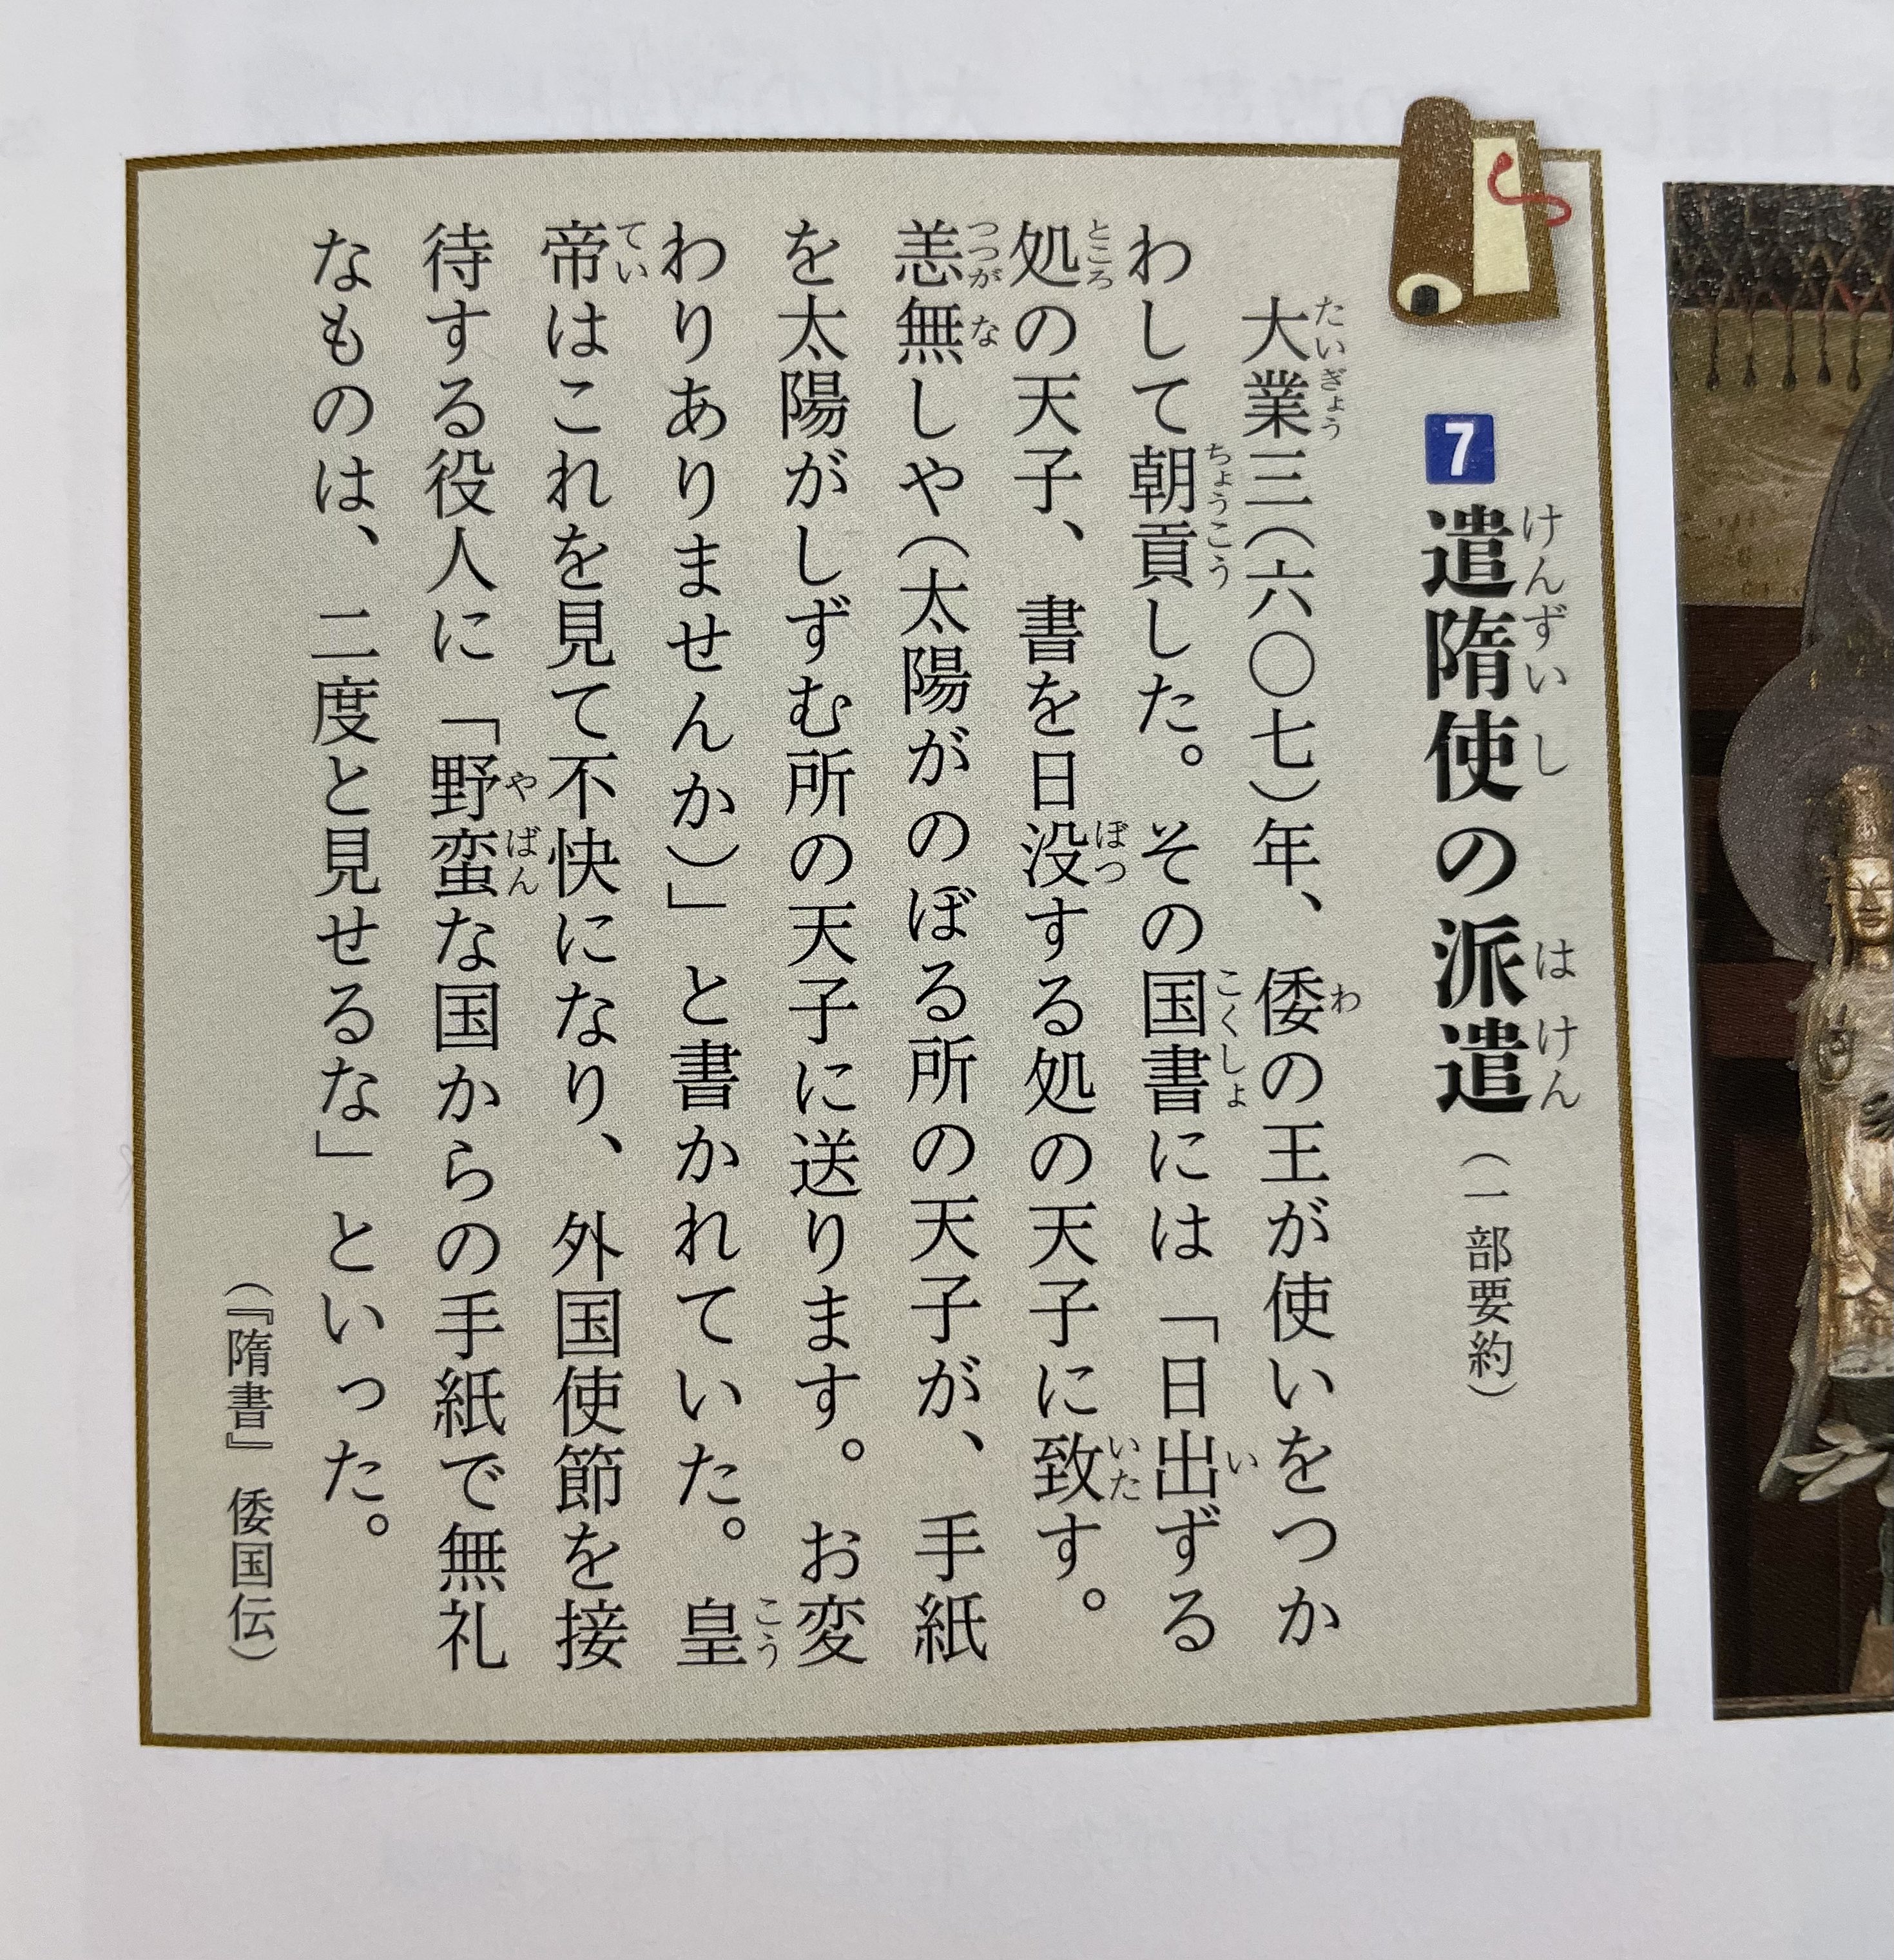 7 遣隋使の派遣（一部要約）
大業三（六〇七）年、倭の王が使いをつか
わして朝貢した。その国書には「日出ずる
処の天子、書を日没する処の天子に致す。
恙無しや（太陽がのぼる所の天子が、手紙
を太陽がしずむ所の天子に送ります。お変
わりありませんか）」と書かれていた。皇
帝はこれを見て不快になり、外国使節を接
待する役人に「野蛮な国からの手紙で無礼
なものは、二度と見せるな」といった。
（『隋書』倭国伝）